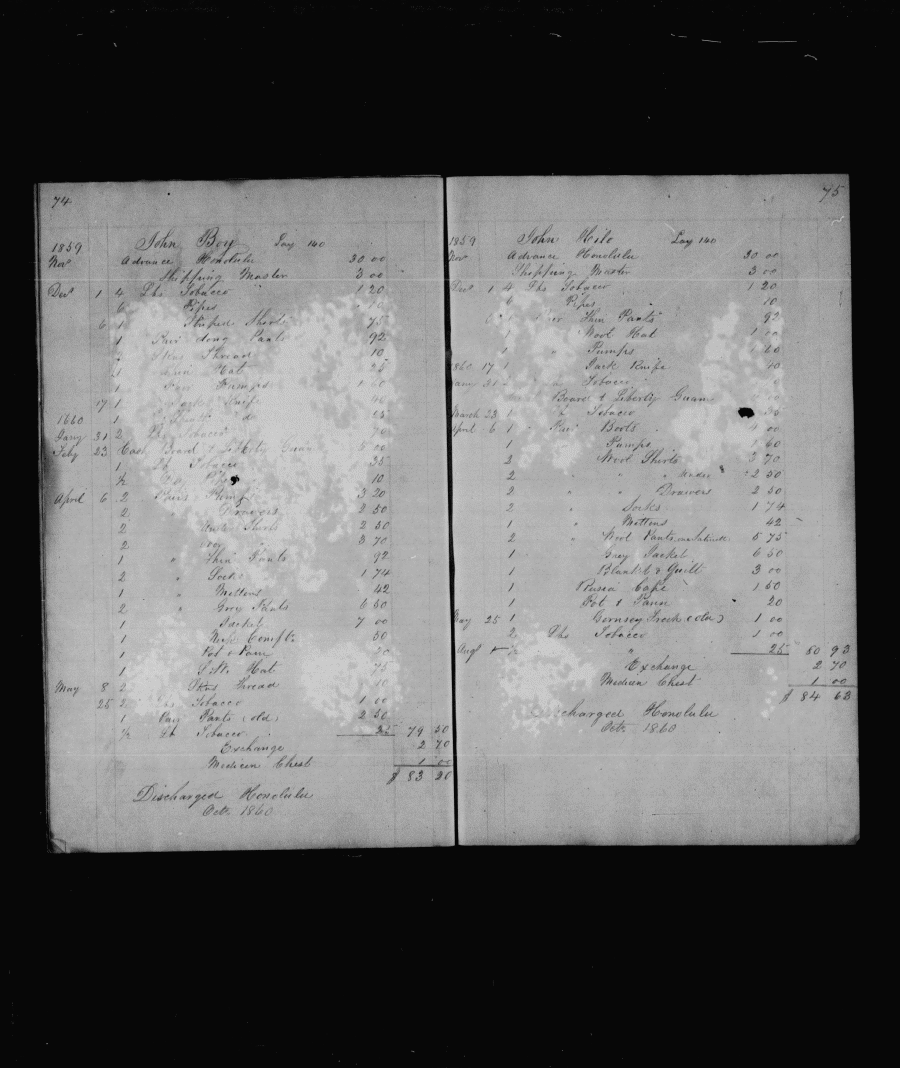 74
John Boy Lay 140
1859
Novr Advance Honolulu 30 00
Shipping Master 3 00
Decr 1 4 Lbs Tobacco 1 20
6 Pipes 10
6 1 Striped Shirts 75
1 Pair dong Pants 92
Skns Thread 10
1 Hat 25
1 Pair Pumps 1 60
17 1 Knife 40
1860 1 Do
Jany 31 2 Lbs Tobacco 70
Feby 23 Cash Board & Liberty Guam 5 00
1 Lb Tobacco 35
½ 10
April 6 2 Pairs Pumps 3 20
2 Drawers 2 50
2 Under Shirts 2 50
2 3 70
1 " Thin Pants 92
2 " Socks 1 74
1 " Mittens 42
2 " Grey Pants 6 50
1 Jacket 7 00
1 50
1 Pot & Pan 20
1 S.W. Hat 75
May 8 2 Skns Thread 10
25 2 Lbs Tobacco 1 00
1 Pants (old) 2 50
½ Lb Tobacco 25 79 50
Exchange 2 70
Medicen Chest 1 00
$ 83 20
Discharged Honolulu
Octr 1860
75
1859 John Hilo Lay 140
Novr Advance Honolulu 30 00
Shopping Master 3 00
Decr 1 4 Lbs Tobacco 1 20
6 Pipes 10
Thin Pants 92
1 Wool Hat 1 00
1 " Pumps 1 60
1860 17 1 Jack Knife 40
Jany 31 Tobacco
Board & Liberty Guam
March 23 1 Lb Tobacco 35
April 6 1 Pair Boots 4 00
1 Pumps 1 60
2 Wool Shirts 3 70
2 " " Under " 2 50
2 " " Drawers 2 50
2 " Socks 1 74
1 " Mittens 42
2 " Wool Pants 5 75
1 Grey Jacket 6 50
1 Blanket & Quilt 3 00
1 Russia Cape 1 50
1 Pot & Pann 20
May 25 1 Gernsey Frock (old) 1 00
2 Lbs Tobacco 1 00
Augt ½ " 25 80 93
Exchange 2 70
Medicen Chest 1 00
$ 84 63
Discharged Honolulu
Octr 1860